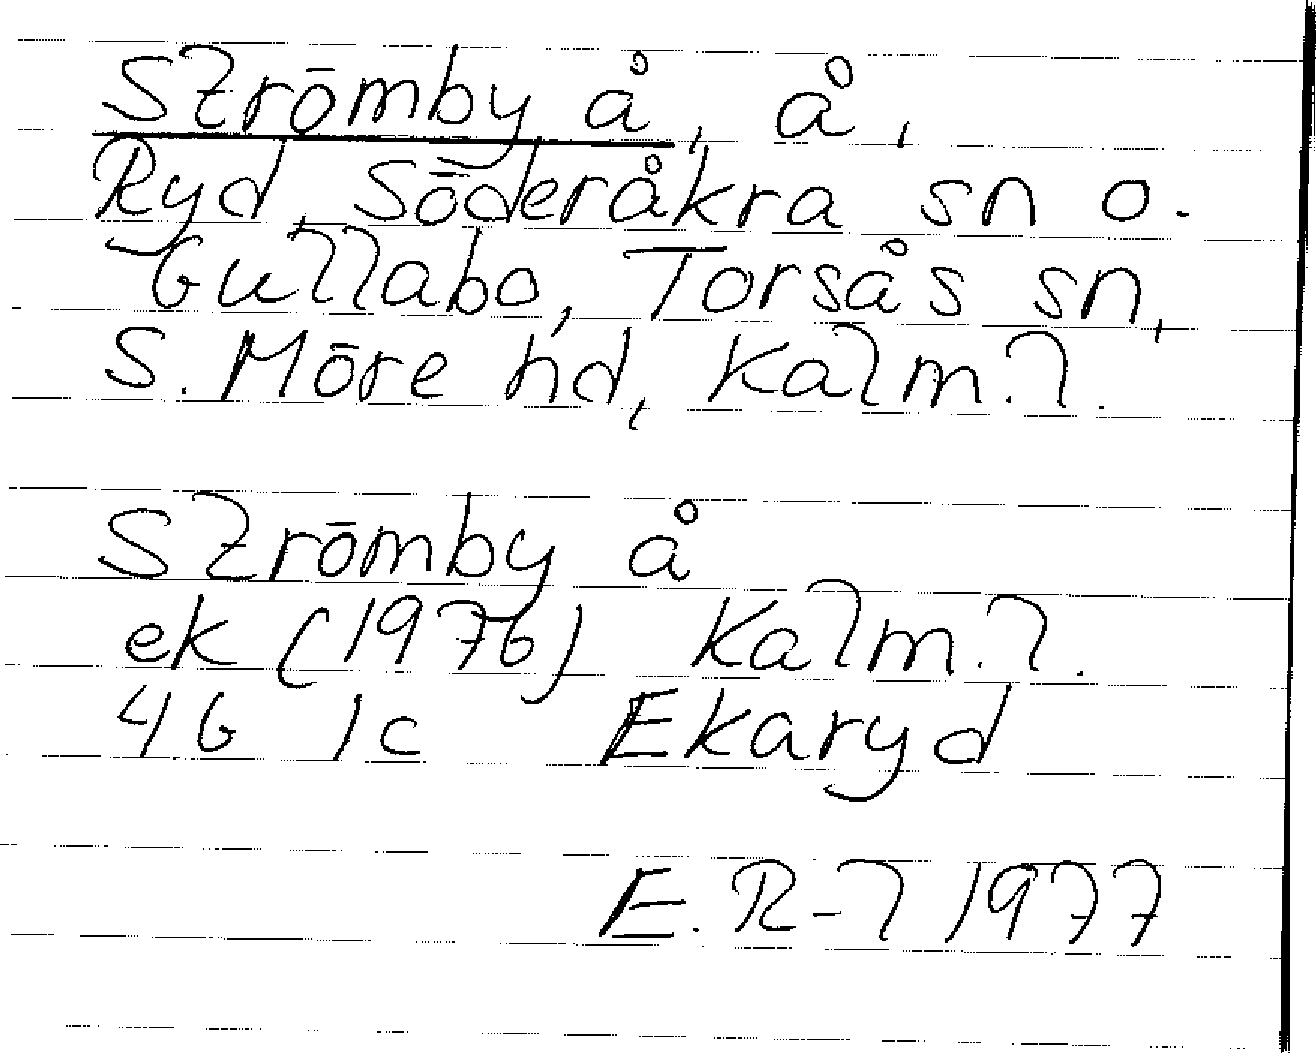 Strömby å, å,
Ryd, Söderåkra sn o.
Gullabo, Torsås sn,
S. Möre hd, Kalm. l.
Strömby å
ek (1976) Kalm. l.
4G 1c Ekaryd
E. R-l 1977